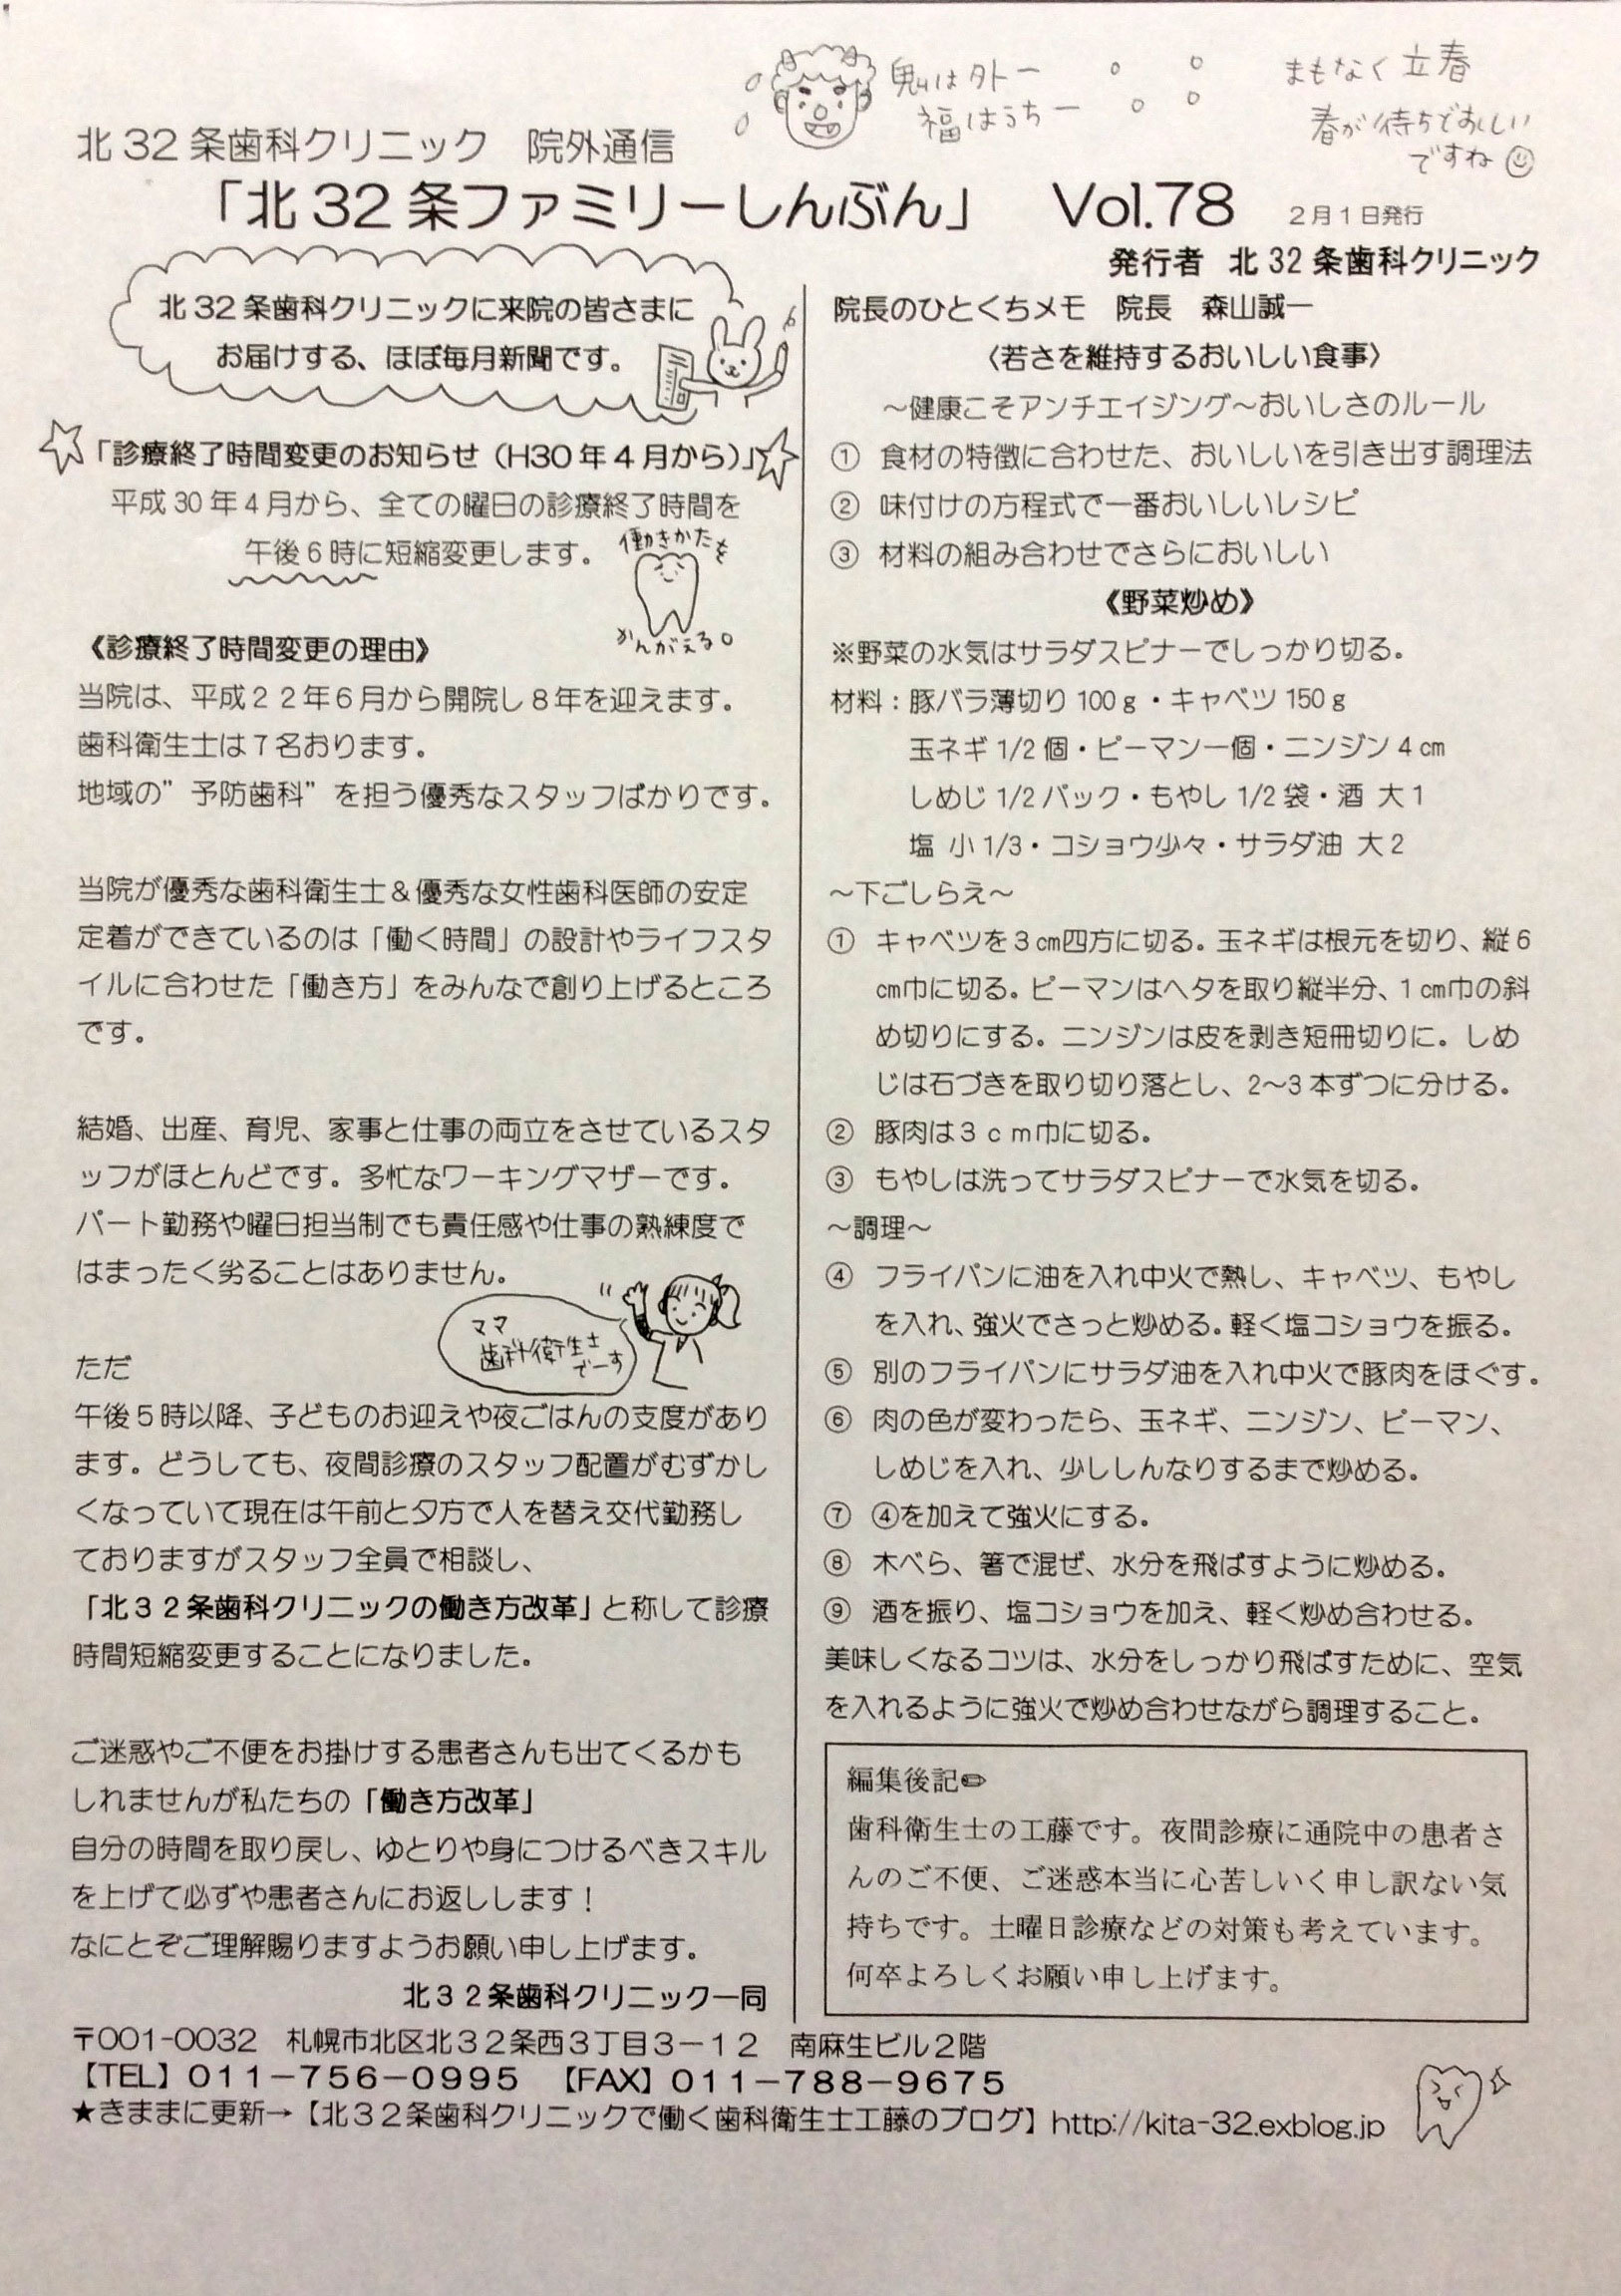 鬼は外ー
福はうちー
まもなく立春
春が待ちどおしい
ですね
北32条歯科クリニック 院外通信
「北32条ファミリーしんぶん」 Vol.78 2月1日発行
発行者 北32条歯科クリニック
北32条歯科クリニックに来院の皆さまに
お届けする、ほぼ毎月新聞です。
「診療終了時間変更のお知らせ(H30年4月から)」
平成30年4月から、全ての曜日の診療終了時間を
午後6時に短縮変更します。
働きかたを
かんがえる。
《診療終了時間変更の理由》
当院は、平成22年6月から開院し8年を迎えます。
歯科衛生士は7名おります。
地域の”予防歯科”を担う優秀なスタッフばかりです。
当院が優秀な歯科衛生士&優秀な女性歯科医師の安定
定着ができているのは「働く時間」の設計やライフスタ
イルに合わせた「働き方」をみんなで創り上げるところ
です。
結婚、出産、育児、家事と仕事の両立をさせているスタ
ッフがほとんどです。多忙なワーキングマザーです。
パート勤務や曜日担当制でも責任感や仕事の熟練度で
はまったく劣ることはありません。
ママ
歯科衛生士
でーす
ただ
午後5時以降、子どものお迎えや夜ごはんの支度があり
ます。どうしても、夜間診療のスタッフ配置がむずかし
くなっていて現在は午前と夕方で人を替え交代勤務し
ておりますがスタッフ全員で相談し、
「北32条歯科クリニックの働き方改革」と称して診療
時間短縮変更することになりました。
ご迷惑やご不便をお掛けする患者さんも出てくるかも
しれませんが私たちの「働き方改革」
自分の時間を取り戻し、ゆとりや身につけるべきスキル
を上げて必ずや患者さんにお返しします!
なにとぞご理解賜りますようお願い申し上げます。
北32条歯科クリニック一同
院長のひとくちメモ 院長 森山誠一
〈若さを維持するおいしい食事〉
~健康こそアンチエイジング~おいしさのルール
① 食材の特徴に合わせた、おいしいを引き出す調理法
② 味付けの方程式で一番おいしいレシピ
③ 材料の組み合わせでさらにおいしい
《野菜炒め》
※野菜の水気はサラダスピナーでしっかり切る。
材料:豚バラ薄切り100g・キャベツ150g
玉ネギ1/2個・ピーマン一個・ニンジン4㎝
しめじ1/2パック・もやし1/2袋・酒 大1
塩 小1/3・コショウ少々・サラダ油 大2
~下ごしらえ~
① キャベツを3㎝四方に切る。玉ネギは根元を切り、縦6
㎝巾に切る。ピーマンはヘタを取り縦半分、1㎝巾の斜
め切りにする。ニンジンは皮を剥き短冊切りに。しめ
じは石づきを取り切り落とし、2~3本ずつに分ける。
② 豚肉は3cm巾に切る。
③ もやしは洗ってサラダスピナーで水気を切る。
~調理~
④ フライパンに油を入れ中火で熱し、キャベツ、もやし
を入れ、強火でさっと炒める。軽く塩コショウを振る。
⑤ 別のフライパンにサラダ油を入れ中火で豚肉をほぐす。
⑥ 肉の色が変わったら、玉ネギ、ニンジン、ピーマン、
しめじを入れ、少ししんなりするまで炒める。
⑦ ④を加えて強火にする。
⑧ 木べら、箸で混ぜ、水分を飛ばすように炒める。
⑨ 酒を振り、塩コショウを加え、軽く炒め合わせる。
美味しくなるコツは、水分をしっかり飛ばすために、空気
を入れるように強火で炒め合わせながら調理すること。
編集後記✏
歯科衛生士の工藤です。夜間診療に通院中の患者さ
んのご不便、ご迷惑本当に心苦しいく申し訳ない気
持ちです。土曜日診療などの対策も考えています。
何卒よろしくお願い申し上げます。
〒001-0032 札幌市北区北32条西3丁目3-12 南麻生ビル2階
【TEL】011-756-0995 【FAX】011-788-9675
★きままに更新→【北32条歯科クリニックで働く歯科衛生士工藤のブログ】http://kita-32.exblog.jp